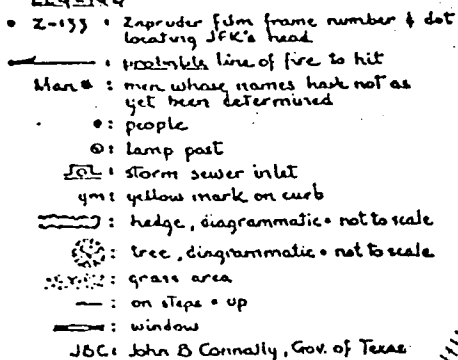 • Z-133 : Zapruder film frame number & dot
locating JFK's head
: probable line of fire to hit
Man # : men whose names have not as
yet been determined
• : people
: lamp post
: storm sewer inlet
ym : yellow mark on curb
: hedge, diagrammatic • not to scale
: tree, diagrammatic • not to scale
: grass area
— : on steps = up
: window
JBC : John B Connally, Gov. of Texas